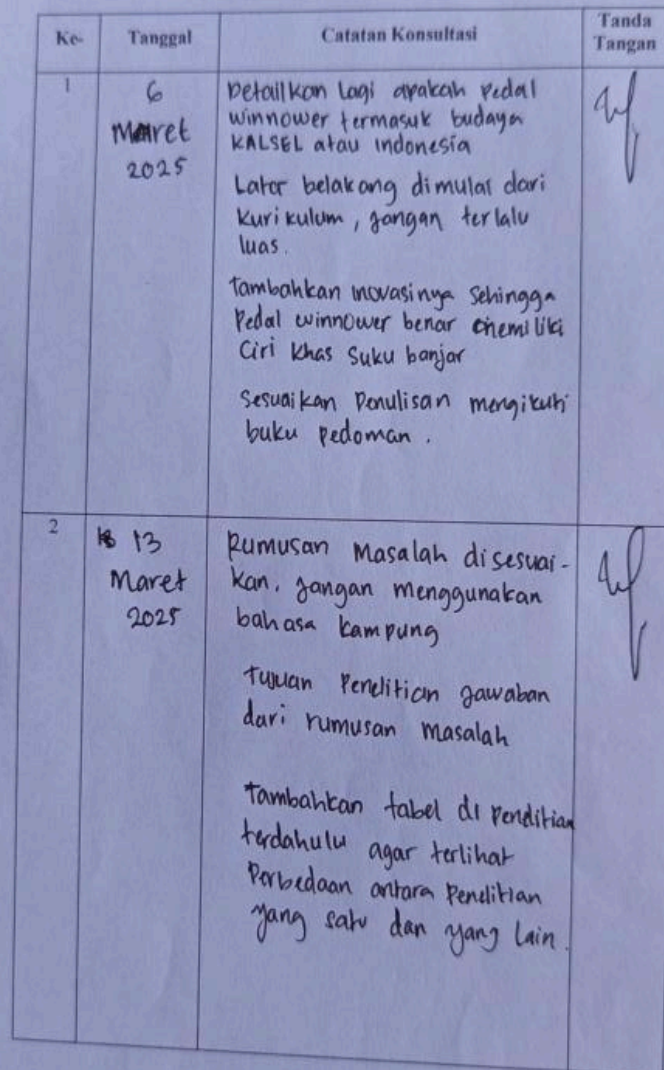 Ke- Tanggal Catatan Konsultasi Tanda Tangan
1
6
Maret
2025
Detailkan lagi apakah pedal
winnower termasuk budaya
KALSEL atau indonesia
Lator belakang dimulai dari
kurikulum, jangan terlalu
luas.
Tambahkan inovasinya sehingga
Pedal winnower benar memiliki
Ciri khas suku banjar
Sesuaikan Penulisan mengikuti
buku pedoman.
2
13
Maret
2025
Rumusan Masalah disesuai-
kan. jangan menggunakan
bahasa kampung
Tujuan Penelitian jawaban
dari rumusan Masalah
Tambahkan tabel di Penelitian
terdahulu agar terlihat
Perbedaan antara Penelitian
yang satu dan yang lain.